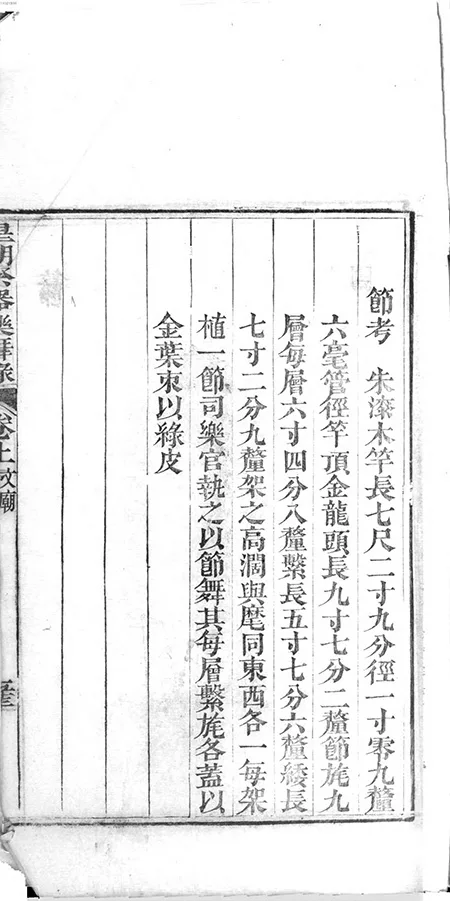 節考　朱漆木竿長七尺二寸九分徑一寸零九釐
六毫管徑竿頂金龍頭長九寸七分二釐節旄九
層每層六寸四分八釐繫長五寸七分六釐緌長
七寸二分九釐架之高濶與麾同東西各一每架
植一節司樂官執之以節舞其每層繫旄各蓋以
金葉束以綠皮
皇明祭器樂舞錄　卷上　文廟